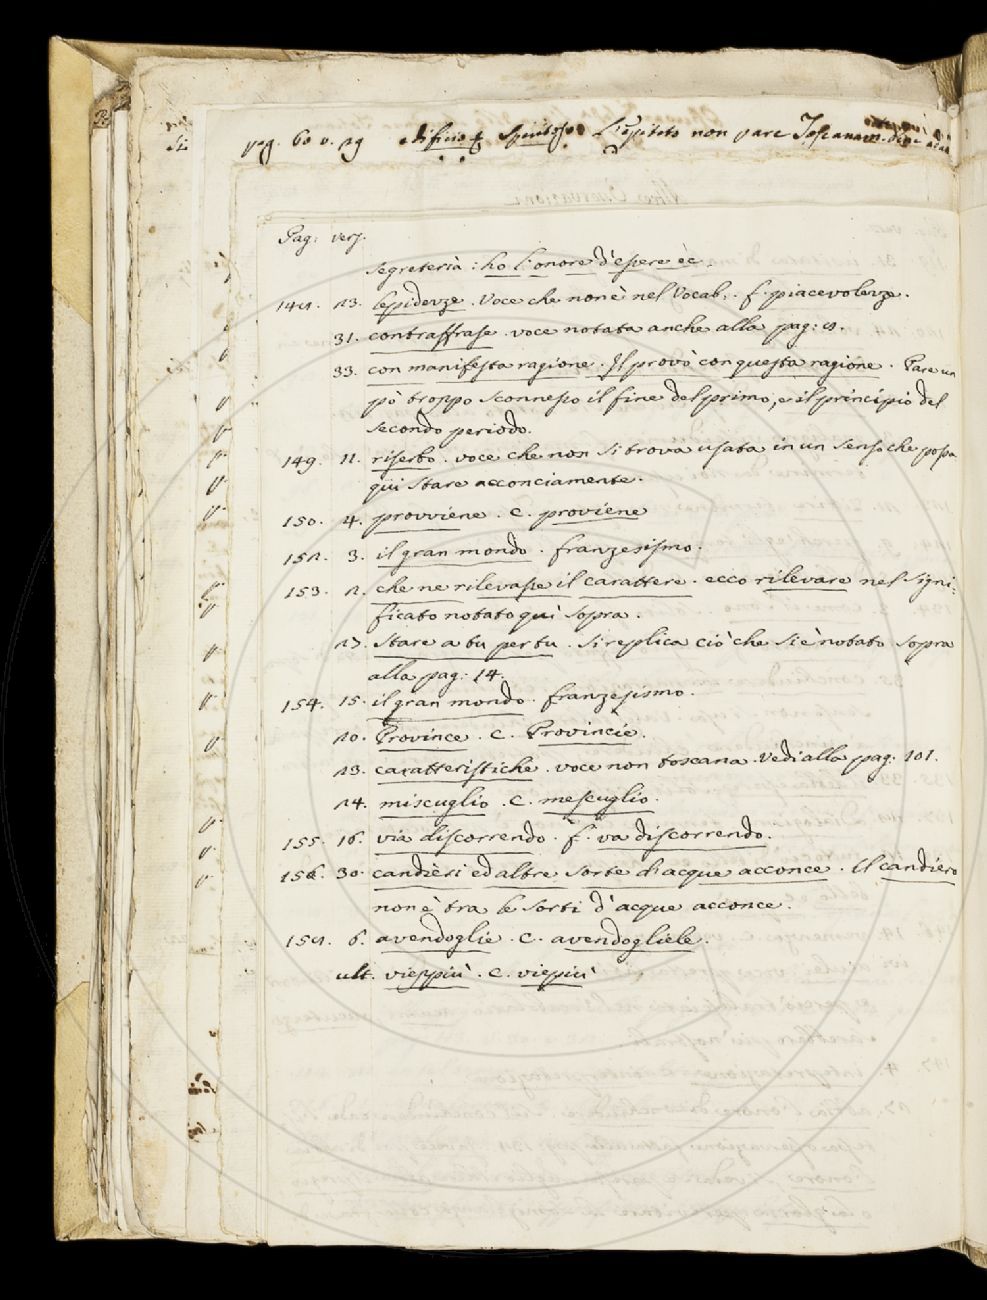 pag. 60 v. 29 edificio spiritoso. L'epiteto non pare Toscanam.
Pag: vers.
segreteria: ho l'onore d'essere &c.
148. 23. lepidezze. Voce che non è nel Vocab:. f. piacevolezze.
31. contraffrase. voce notata anche alla pag: 8.
33. con manifesta ragione. Il provò con questa ragione. Pare un
pò troppo sconnesso il fine del primo, e il principio del
secondo periodo.
149. 11. riserbo. voce che non si trova usata in un senso che possa
qui stare acconciamente.
150. 4. provviene. C. proviene
152. 3. il gran mondo. franzesismo.
153. 2. che ne rilevasse il carattere. ecco rilevare nel signi:
ficato notato quì sopra.
27. Stare a tu per tu. si replica ciò che si è notato sopra
alla pag: 14.
154. 15. il gran mondo. franzesismo.
20. Province. C. Provincie.
23. caratteristiche. voce non toscana. Vedi alla pag: 101.
24. miscuglio. C. mescuglio.
155. 16. via discorrendo. f. va discorrendo.
156. 30. candieri ed altre sorte di acque acconce. Il candiero
non è tra le sorti d'acque acconce.
158. 6. avendoglie. C. avendogliele.
ult. vieppiù. C. viepiù